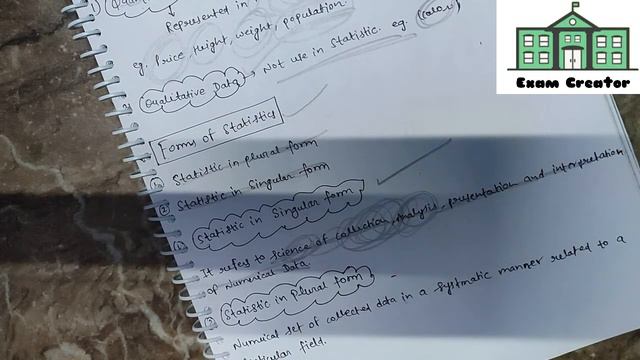 Represented in
eg. Price, Height, weight, population.
Qualitative Data → Not use in Statistic. eg. (color)
Forms of Statistics
① Statistic in plural form
② Statistic in Singular form
① Statistic in Singular form
It refers to science of collection, Analysis, presentation and interpretation
of Numerical Data.
② Statistic in plural form -
Numrical set of collected data in a Systmatic manner related to a
field.
Exam Creator